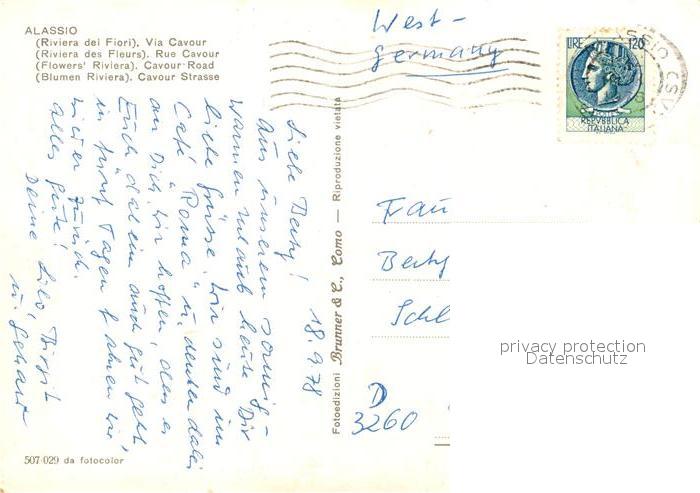 ALASSIO
(Riviera dei Fiori). Via Cavour
(Riviera des Fleurs). Rue Cavour
(Flowers' Riviera). Cavour Road
(Blumen Riviera). Cavour Strasse
West-
Germany
LIRE 120
POSTE
REPVBBLICA
ITALIANA
Liebe Berty!
18.9.78
Aus unserem sonnig-
warmen Urlaub heute Dir
liebe Grüsse. Wir sind im
Café "Roma" u. denken dabei
an Dich. Wir hoffen, dass es
Euch daheim auch gut geht
in fünf Tagen fahren wir,
wieder zurück.
alles Gute!
Deine Lilo, Birgit
u. Gerhard
Fotoedizioni Brunner & C., Como — Riproduzione vietata
Frau
Berty
Schl
D
3260
privacy protection
Datenschutz
507/029 da fotocolor